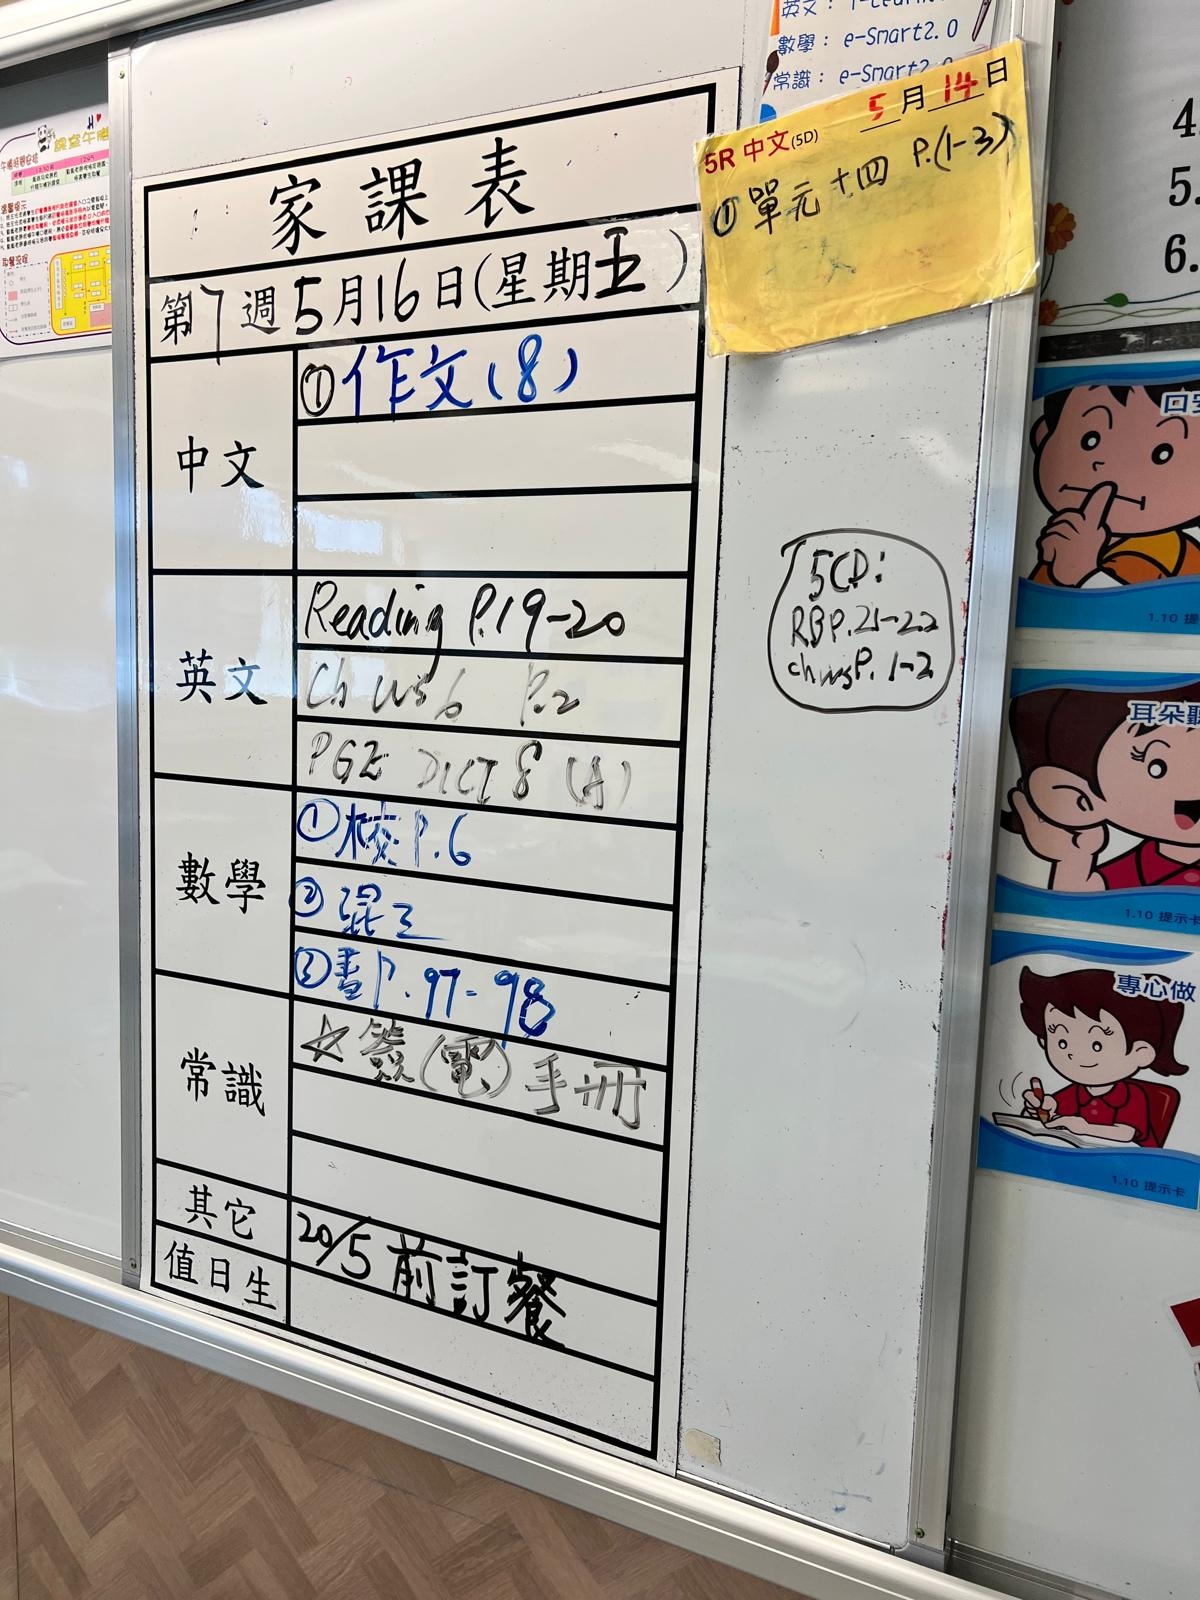 英文：
數學：e-Smart2.0
常識：e-Smart2.0
5月14日
5R 中文(5D)
①單元十四 P.(1-3)
家課表
第7週5月16日(星期五)
中文
①作文(8)
英文
Reading P.19-20
Ch ws6 P.2
PGE DICT 8 (A)
數學
①校P.6
②混工
③書P.97-98
常識
☆簽(電)手冊
其它
20/5前訂餐
值日生
5CD:
RB P.21-22
ch ws P.1-2
4
5.
6.
1.10 提
耳朵
1.10 提示卡
專心做
1.10 提示卡